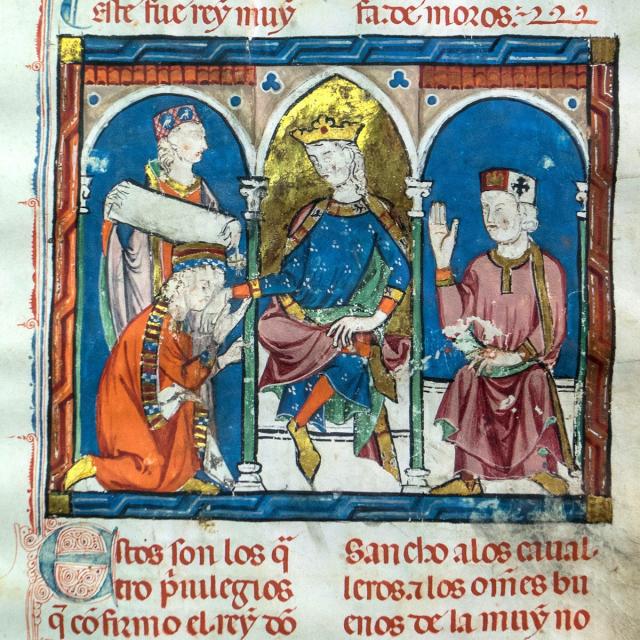 Este fue rey muy
fa. de moros.
Estos son los q̃
tro p̃uilegios
q̃ cõfirmo el rey dõ
Sancho a los caual
leros. ⁊ los om̃es bu
enos de la muy no